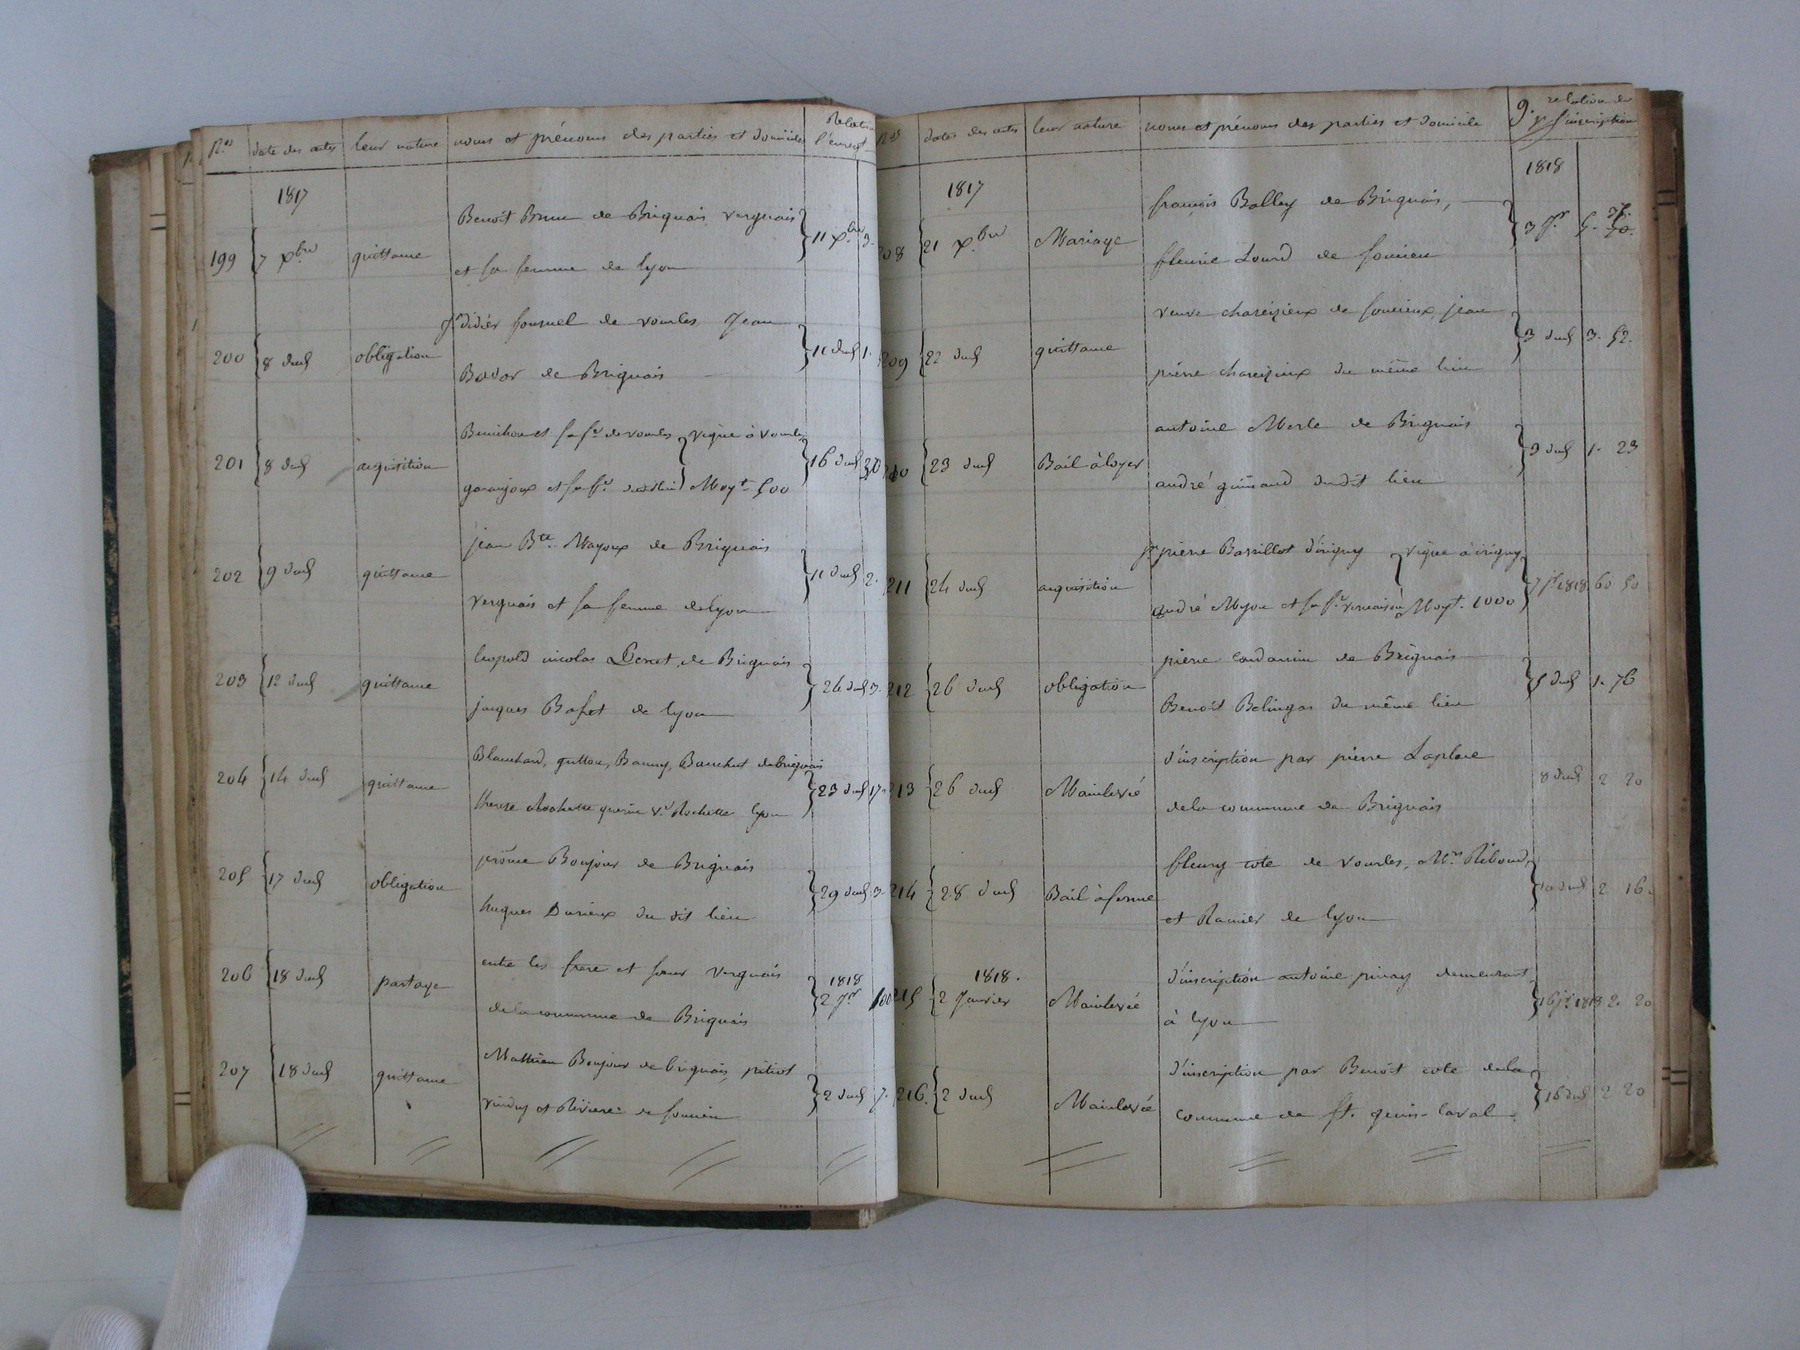 Nos date des actes leur nature noms et prénoms des parties et domicile
1817
Benoit Brun de Brignais verguais
199 7 Xbre quittance 11 Xbre 3.
et sa femme de lyon
didier fournel de vourles Jean
200 8 dud obligation 11 dud 1.
de Brignais
et sa fe de vourles vigne à vourles
201 8 dud acquisition 16 dud 30
et sa fe dudit lieu Moyt 500
jean Bte Mayoux de Brignais
202 9 dud quittance 11 dud 2.
verguais et sa femme de lyon
leopold nicolas de Brignais
203 12 dud quittance 26 dud 3.
jacques de lyon
Blanchard, de brignais
204 14 dud quittance 23 dud 17
therese Rochette ve Rochette lyon
jerôme Bonjour de Brignais
205 17 dud obligation 29 dud 3.
hugues Durieux du dit lieu
entre les frere et soeur verguais
206 18 dud partage 1818 2 Jer 100
de la commune de Brignais
Mathieu Bonjour de brignais, pitiot
207 18 dud quittance 2 dud 7.
et Riviere de
Nos dates des actes leur nature noms et prénoms des parties et domicile 9. relation de l'inscription
1817 1818
françois Balley de Brignais,
208 21 Xbre Mariage 3 Jr 5.
fleurie Lourd de
veuve chareizieux de soucieux jean
209 22 dud quittance 3 dud 3. 52.
pierre chareizieux du même lieu
antoine Merle de Brignais
210 23 dud Bail à loyer 3 dud 1. 23
andré guinand dudit lieu
pierre Barillot d'irigny vigne à irigny
211 24 dud acquisition 7 jr 1818 60 50
andré et sa fe Moyt. 1000
pierre de Brignais
212 26 dud obligation 5 dud 1. 76
Benoit du même lieu
d'inscription par pierre Laplace
213 26 dud Mainlevée 8 dud 2 20
de la commune de Brignais
fleury cote de vourles, Mrs Riboud
214 28 dud Bail à ferme 10 dud 2 16.
et Ramier de lyon
1818.
d'inscription antoine pinay demeurant
215 2 Janvier Mainlevée 16 jr 1818 2. 20
à lyon
d'inscription par Benoit cote de la
216 2 dud Mainlevée 16 dud 2 20
commune de st. genis-laval